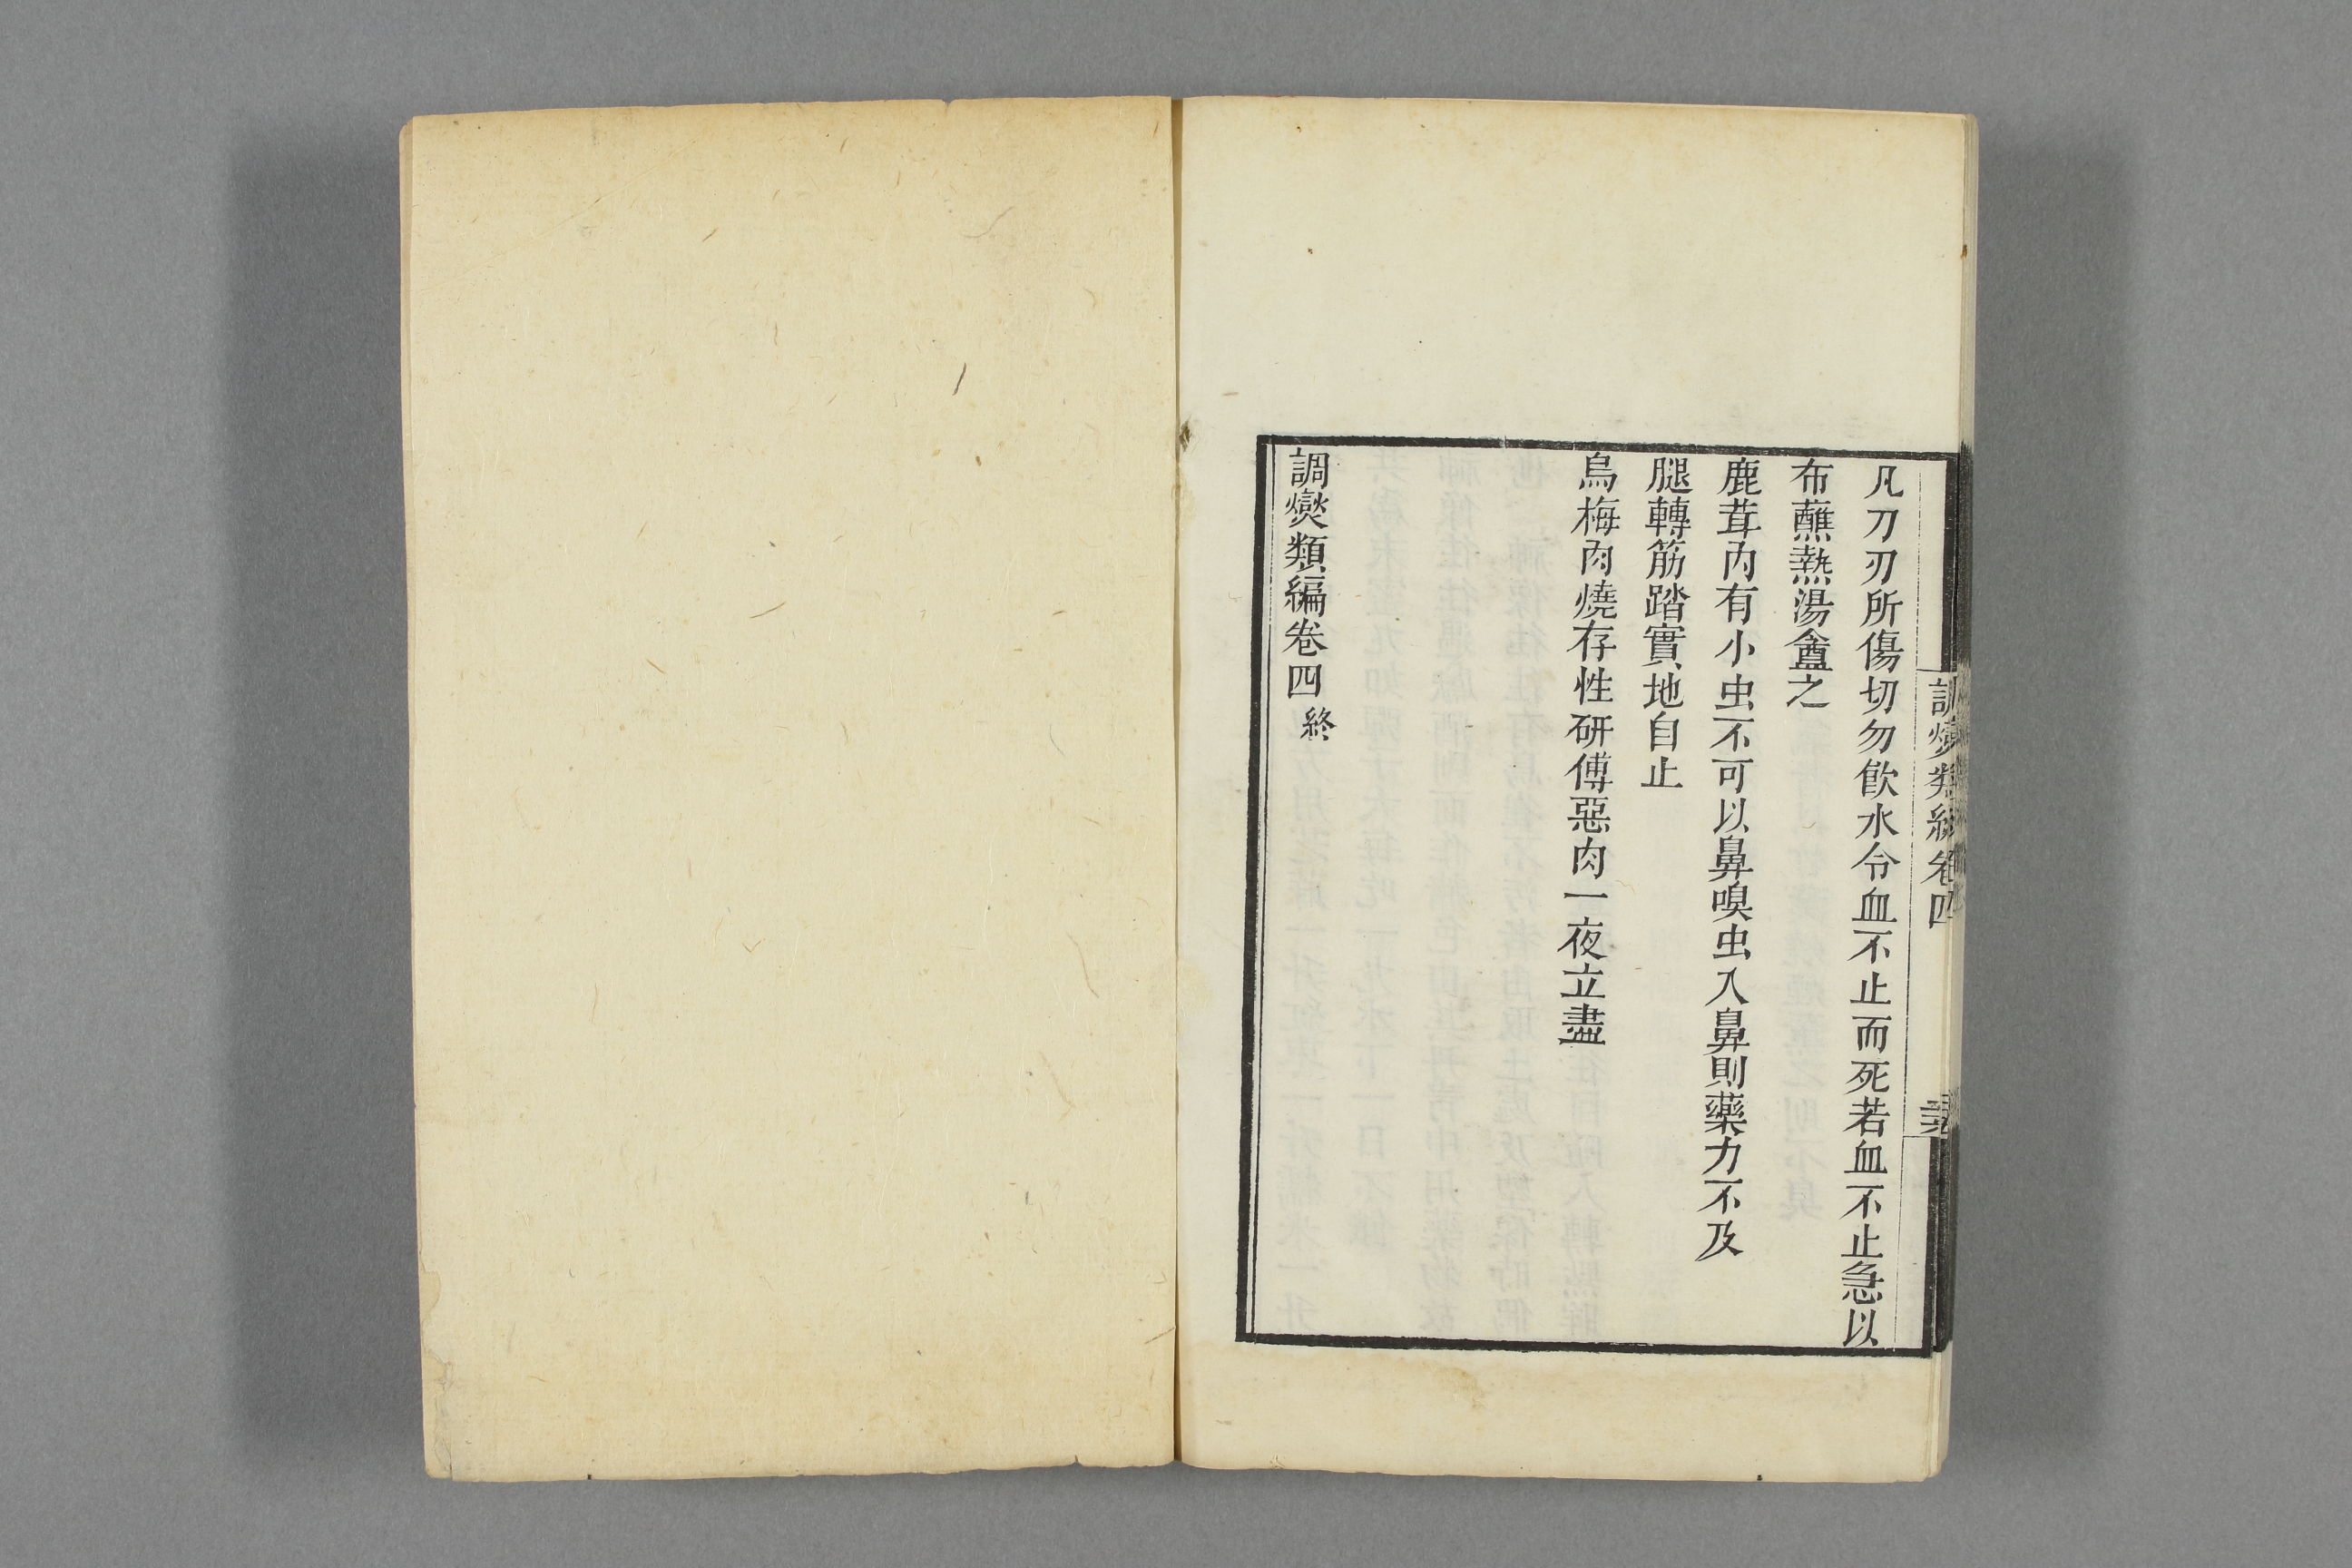 調燮類編卷四
凡刀刃所傷切勿飮水令血不止而死若血不止急以
布蘸熱湯盦之
鹿茸內有小虫不可以鼻嗅虫入鼻則藥力不及
腿轉筋踏實地自止
烏梅肉燒存性研傅惡肉一夜立盡
調燮類編卷四終